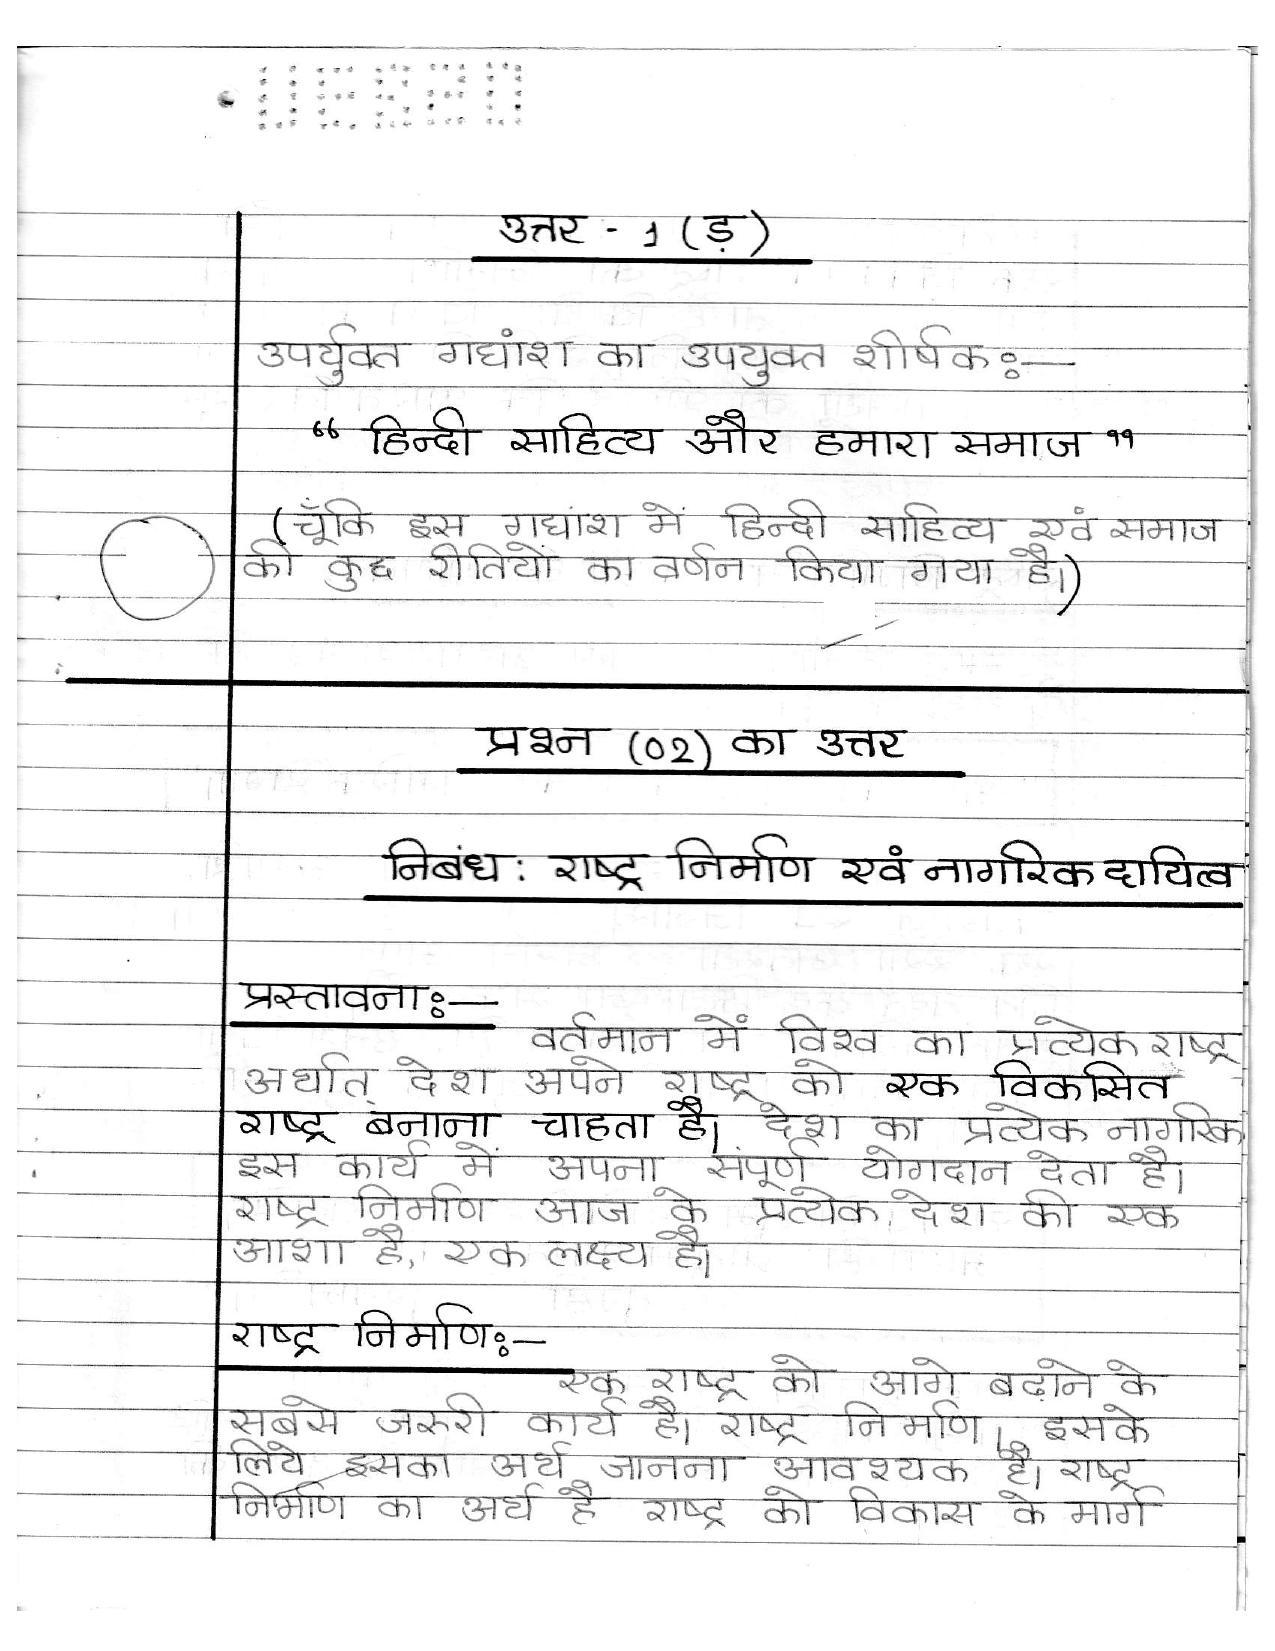 उत्तर - 1 (ड़)
उपर्युक्त गद्यांश का उपयुक्त शीर्षक:—
“ हिन्दी साहित्य और हमारा समाज ”
(चूँकि इस गद्यांश में हिन्दी साहित्य एवं समाज
की कुछ रीतियों का वर्णन किया गया है।)
प्रश्न (02) का उत्तर
निबंध : राष्ट्र निर्माण एवं नागरिक दायित्व
प्रस्तावना:—
वर्तमान में विश्व का प्रत्येक राष्ट्र
अर्थात् देश अपने राष्ट्र को एक विकसित
राष्ट्र बनाना चाहता है। देश का प्रत्येक नागरिक
इस कार्य में अपना संपूर्ण योगदान देता है।
राष्ट्र निर्माण आज के प्रत्येक देश की एक
आशा है, एक लक्ष्य है।
राष्ट्र निर्माण:—
एक राष्ट्र को आगे बढ़ाने के
सबसे जरुरी कार्य है। राष्ट्र निर्माण। इसके
लिये इसका अर्थ जानना आवश्यक है। राष्ट्र
निर्माण का अर्थ है राष्ट्र को विकास के मार्ग